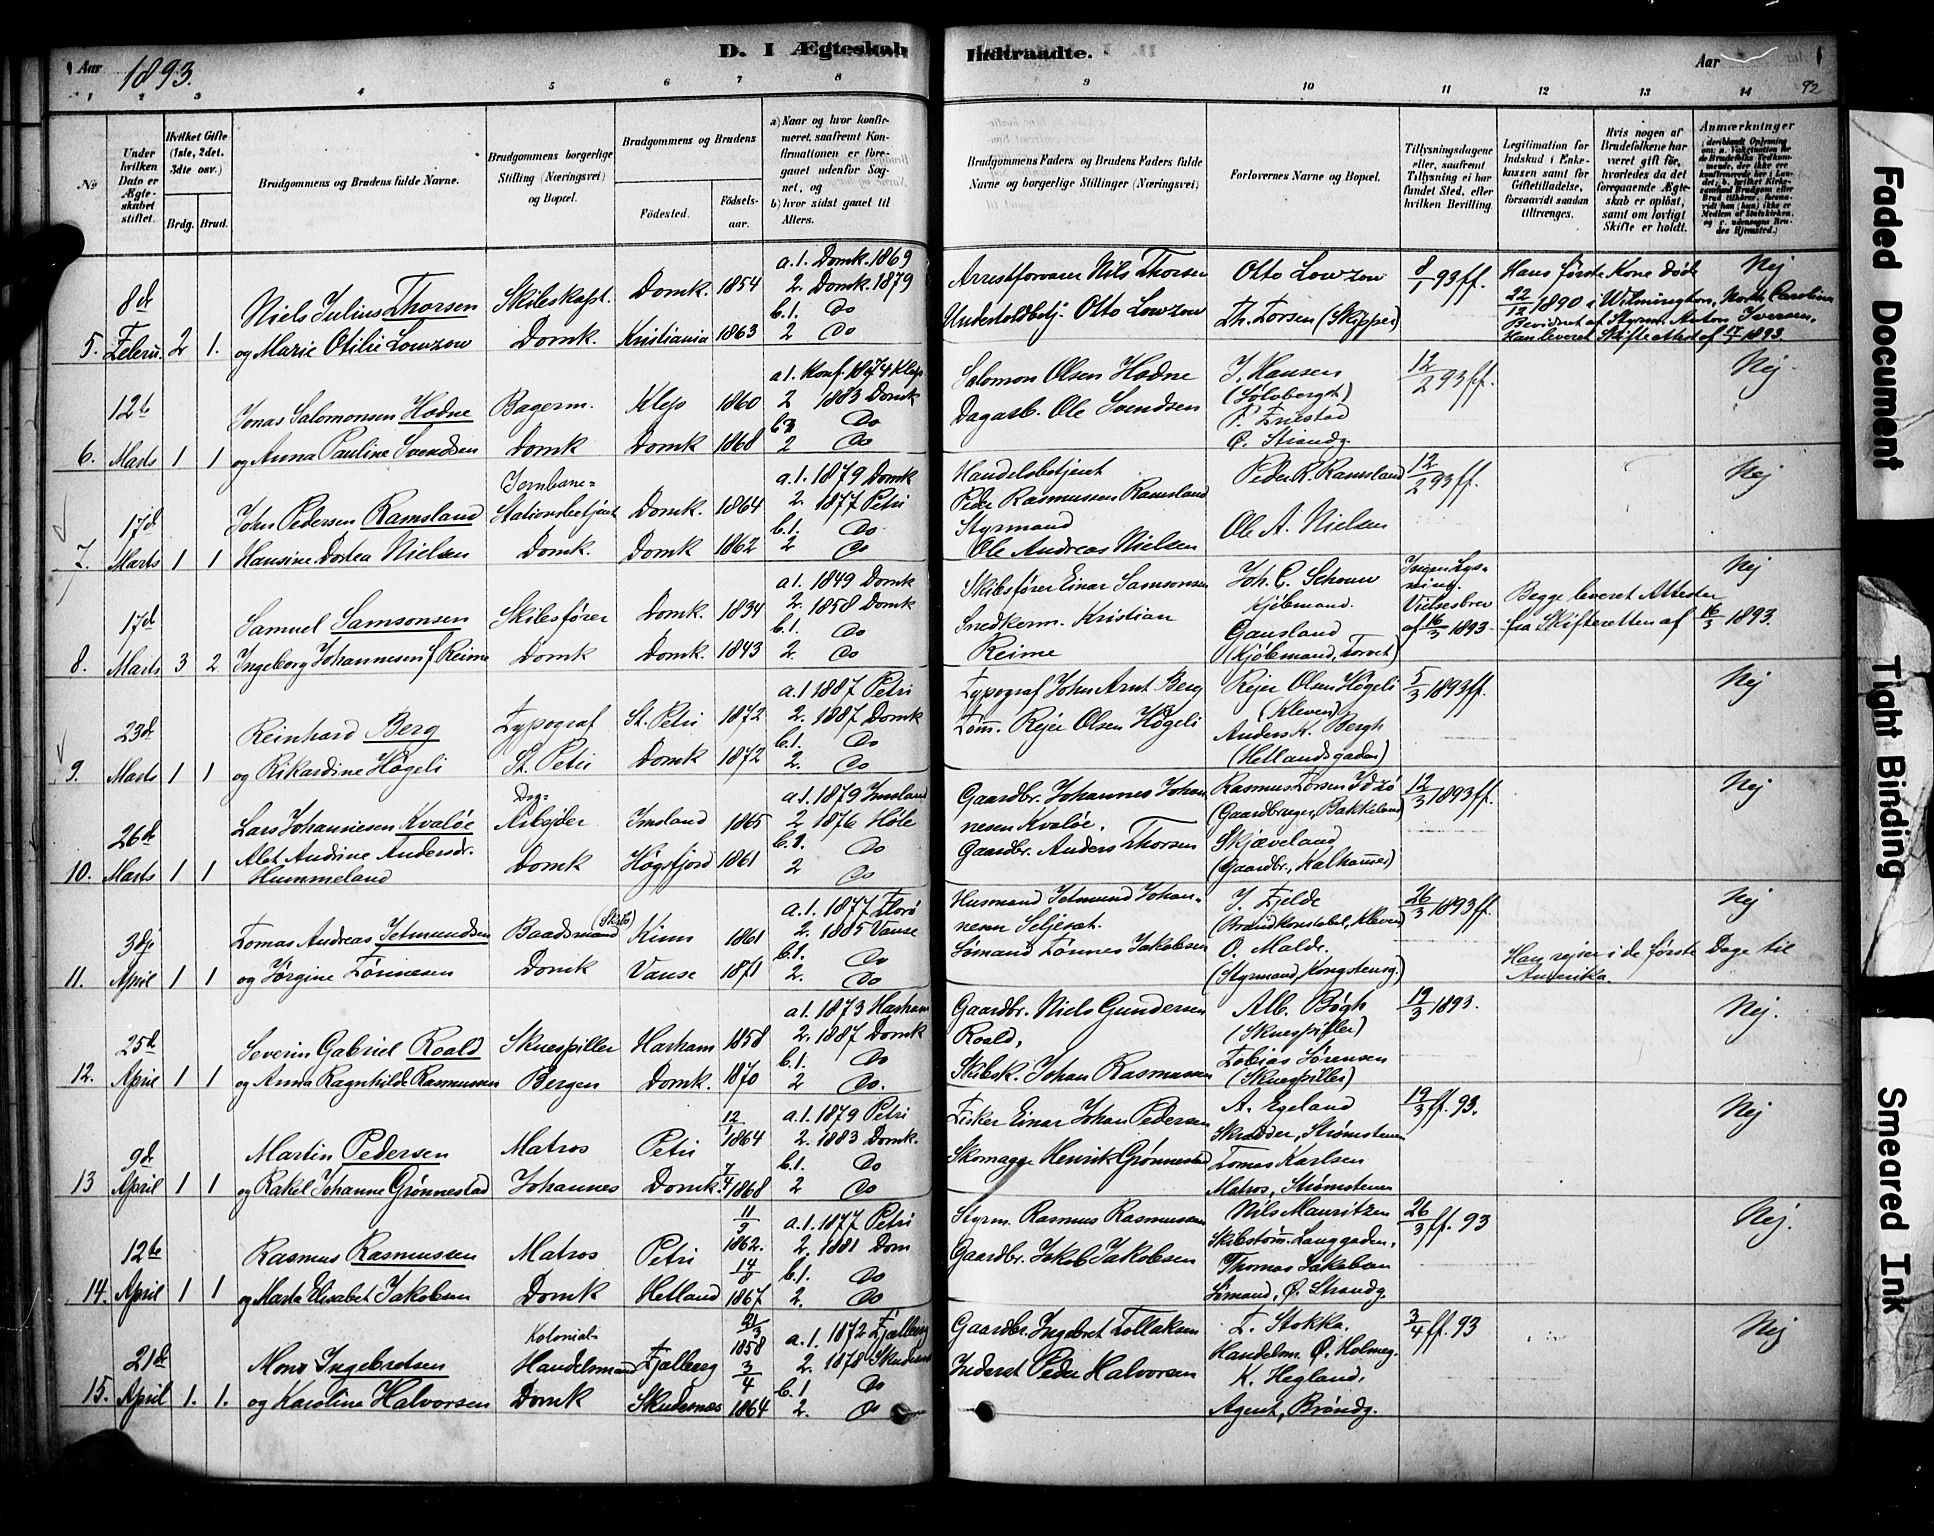 Aar 1893.
D. I Ægteskab Indtraadte.
Aar
92
1 2 3 4 5 6 7 8 9 10 11 12 13 14
No
Under hvilken Dato er Ægteskabet stiftet.
Hvilket Gifte (1ste, 2det, 3dte osv.)
Brdg. Brud.
Brudgommens og Brudens fulde Navne.
Brudgommens borgerlige Stilling (Næringsvei) og Bopæl.
Brudgommens og Brudens
Fødested.
Fødselsaar.
a) Naar og hvor konfirmeret, saafremt Konfirmationen er foregaaet udenfor Sognet, og
b) hvor sidst gaaet til Alters.
Brudgommens Faders og Brudens Faders fulde Navne og borgerlige Stillinger (Næringsvei)
Forlovernes Navne og Bopæl.
Tillysningsdagene eller, saafremt Tillysning ei har fundet Sted, efter hvilken Bevilling.
Legitimation for Indskud i Enkekassen samt for Giftetilladelse, forsaavidt saadan tiltrænges.
Hvis nogen af Brudefolkene har været gift før, hvorledes da det foregaaende Ægteskab er opløst, samt om lovligt Skifte er holdt.
Anmærkninger
5. 8de Febru. 2 1.
Niels Julius Thorsen
og Marie Otilie Lowzow
Skibskapt.
Domk.
Domk. 1854
Kristiania 1863
a. 1. Domk. 1869
2. Domk. 1879
b. 1. Do
2 Do
Arrestforvarer Nils Thorsen
Undertoldbetj. Otto Lowzow
Otto Lowzow
Th. Torsen (Skipper)
8/1 93 ff.
Hans første Kone døde
22/12 1890 i Wilmington, North Carolina
Bevidnet af Styrm. Anton Iversen.
Han leveret Skifteattest af 17/1 1893.
Nej
6. 12te Marts 1 1
Jonas Salomonsen Hodne
og Anna Pauline Svendsen
Bagerm.
Domk
Klep 1860
Domk 1868
a 1. Konf. 1874 Klep
2 1883 Domk
b. Do
2 Do
Salomon Olsen Hodne
Dagarb. Ole Svendsen
J. Hansen
(Sølvbergt)
P. Friestad
Ø. Strandg.
12/2 93 ff.
Nej.
7. 17d Marts 1 1
John Pedersen Ramsland
Hansine Dortea Nielsen
Jernbane=
Stationsbetjent
Domk.
Domk. 1864
Domk 1862
a. 1. 1879 Domk
2. 1877 Petri
b. 1. Do
2 Do
Handelsbetjent
Peder Rasmussen Ramsland
Styrmand
Ole Andreas Nielsen
Peder R. Ramsland
Ole A. Nielsen
12/2 93 ff.
Nej
8. 17d Marts 3 2
Samuel Samsonsen
Ingeborg Johannesen f. Reime
Skibsfører
Domk
Domk. 1834
Domk. 1843
a 1. 1849 Domk
2. 1858 Domk
b. 1. Do
2. Do
Skibsfører Einar Samsonsen
Snedkerm. Kristian
Reime
Joh. C. Schouw
Kjøbmand.
Gausland
(Kjøbmand, Torvet)
Ingen Lysning.
Vielsesbrev
af 16/3 1893.
Begge leveret Attester
fra Skifteretten af 16/3 1893.
Nej
9. 23d Marts 1 1
Reinhard Berg
og Rikardine Høgeli
Typograf
St. Petri
St. Petri 1872
Domk 1872
a. 1 1887 Petri
2. 1887 Domk
b. 1. Do
2. Do
Typograf John Arnt Berg
Tøm. Rejer Olsen Høgeli
Rejer Olsen Høgeli
(Kleven)
Anders K. Bergh
(Hetlandsgaden)
5/3 1893 ff.
Nej
10. 26d Marts 1 1
Lars Johannesen Kvaløe
Alet Andrine Andersdr.
Hummeland
Dag=
Arbejder
Domk
Imsland 1865
Høgsfjord 1861
a. 1. 1879 Imsland
2 1876 Høle
b. 1. Do
2 Do
Gaardbr. Johannes Johannesen Kvaløe.
Gaardbr. Anders Thorsen
Rasmus Torsen Idsø
(Gaardbruger, Bakkeland)
Skjæveland
(Gaardbr., Kalhammer)
12/3 1893 ff.
Nej
11. 3dje April 1 1
Tomas Andreas Jetmundsen
og Jørgine Tønnesen
Baadsmand (Skibs)
Domk
Kinn 1861
Vanse 1871
a. 1. 1877 Florø
2. 1885 Vanse
b. 1. Do
2. Do
Husmand Jetmund Johannesen Seljeset.
Sømand Tønnes Jakobsen
J. Fjelde
(Brandkonstabel, Kleven)
O. Malde.
(Styrmand, Kongstensg.)
26/3 1893 ff.
Han rejser i de første Dage til
Amerika.
Nej
12. 25d April 1 1
Severin Gabriel Roald
og Anna Ragnhilde Rasmussen
Skuespiller
Bergen
Harham 1858
Domk. 1870
a 1. 1873 Harham
2. 1887 Domk
b. 1. Do
2 Do.
Gaardbr. Niels Gundersen
Roald,
Skibsk. Johan Rasmussen
Alb. Bøgh
(Skuespiller)
Tobias Sørensen
(Skuespiller)
19/3 1893.
Nej.
13 9de April 1 1
Martin Pedersen
og Rakel Johanne Grønnestad
Matros
Johannes
Petri 12/1 1864
Domk. 7/4 1868
a. 1. 1879 Petri
2. 1883 Domk.
b. 1. Do
2 Do
Fisker Einar Johan Pedersen
Skomager Henrik Grønnestad
A. Egeland
Skrædder, Strømstenen
Tomas Karlsen
Matros, Strømstenen
19/3 ff. 93.
Nej
14. 12te April 1 1
Rasmus Rasmussen
og Marta Elisabet Jakobsen
Matros
Domk
Petri 11/9 1862.
Hetland 14/8 1867
a. 1. 1877 Petri
2. 1881 Dom
b. 1. Do
2. Do
Styrm. Rasmus Rasmussen
Gaardbr. Jakob Jakobsen
Nils Mauritzen
Skibstøm. Langgaden.
Thomas Jakobsen
Sømand, Ø. Strandg.
26/3 ff. 93
Nej.
15. 21de April 1. 1.
Mons Ingebretsen
og Karoline Halvorsen
Kolonial-
Handelsmand
Domk
Fjelberg 1858
Skudesnæs 3/4 1864
a. 1. 1872 Fjælberg
2. 1878 Skudesnæs
b. 1 Do
2. Do
Gaardbr. Ingebret Tollaksen
Inderst Peder Halvorsen
T. Stokka.
Handelm. Ø. Holmeg.
K. Hegland,
Agent, Brøndg.
3/4 ff. 93
Nej
Faded Document
Tight Binding
Smeared Ink